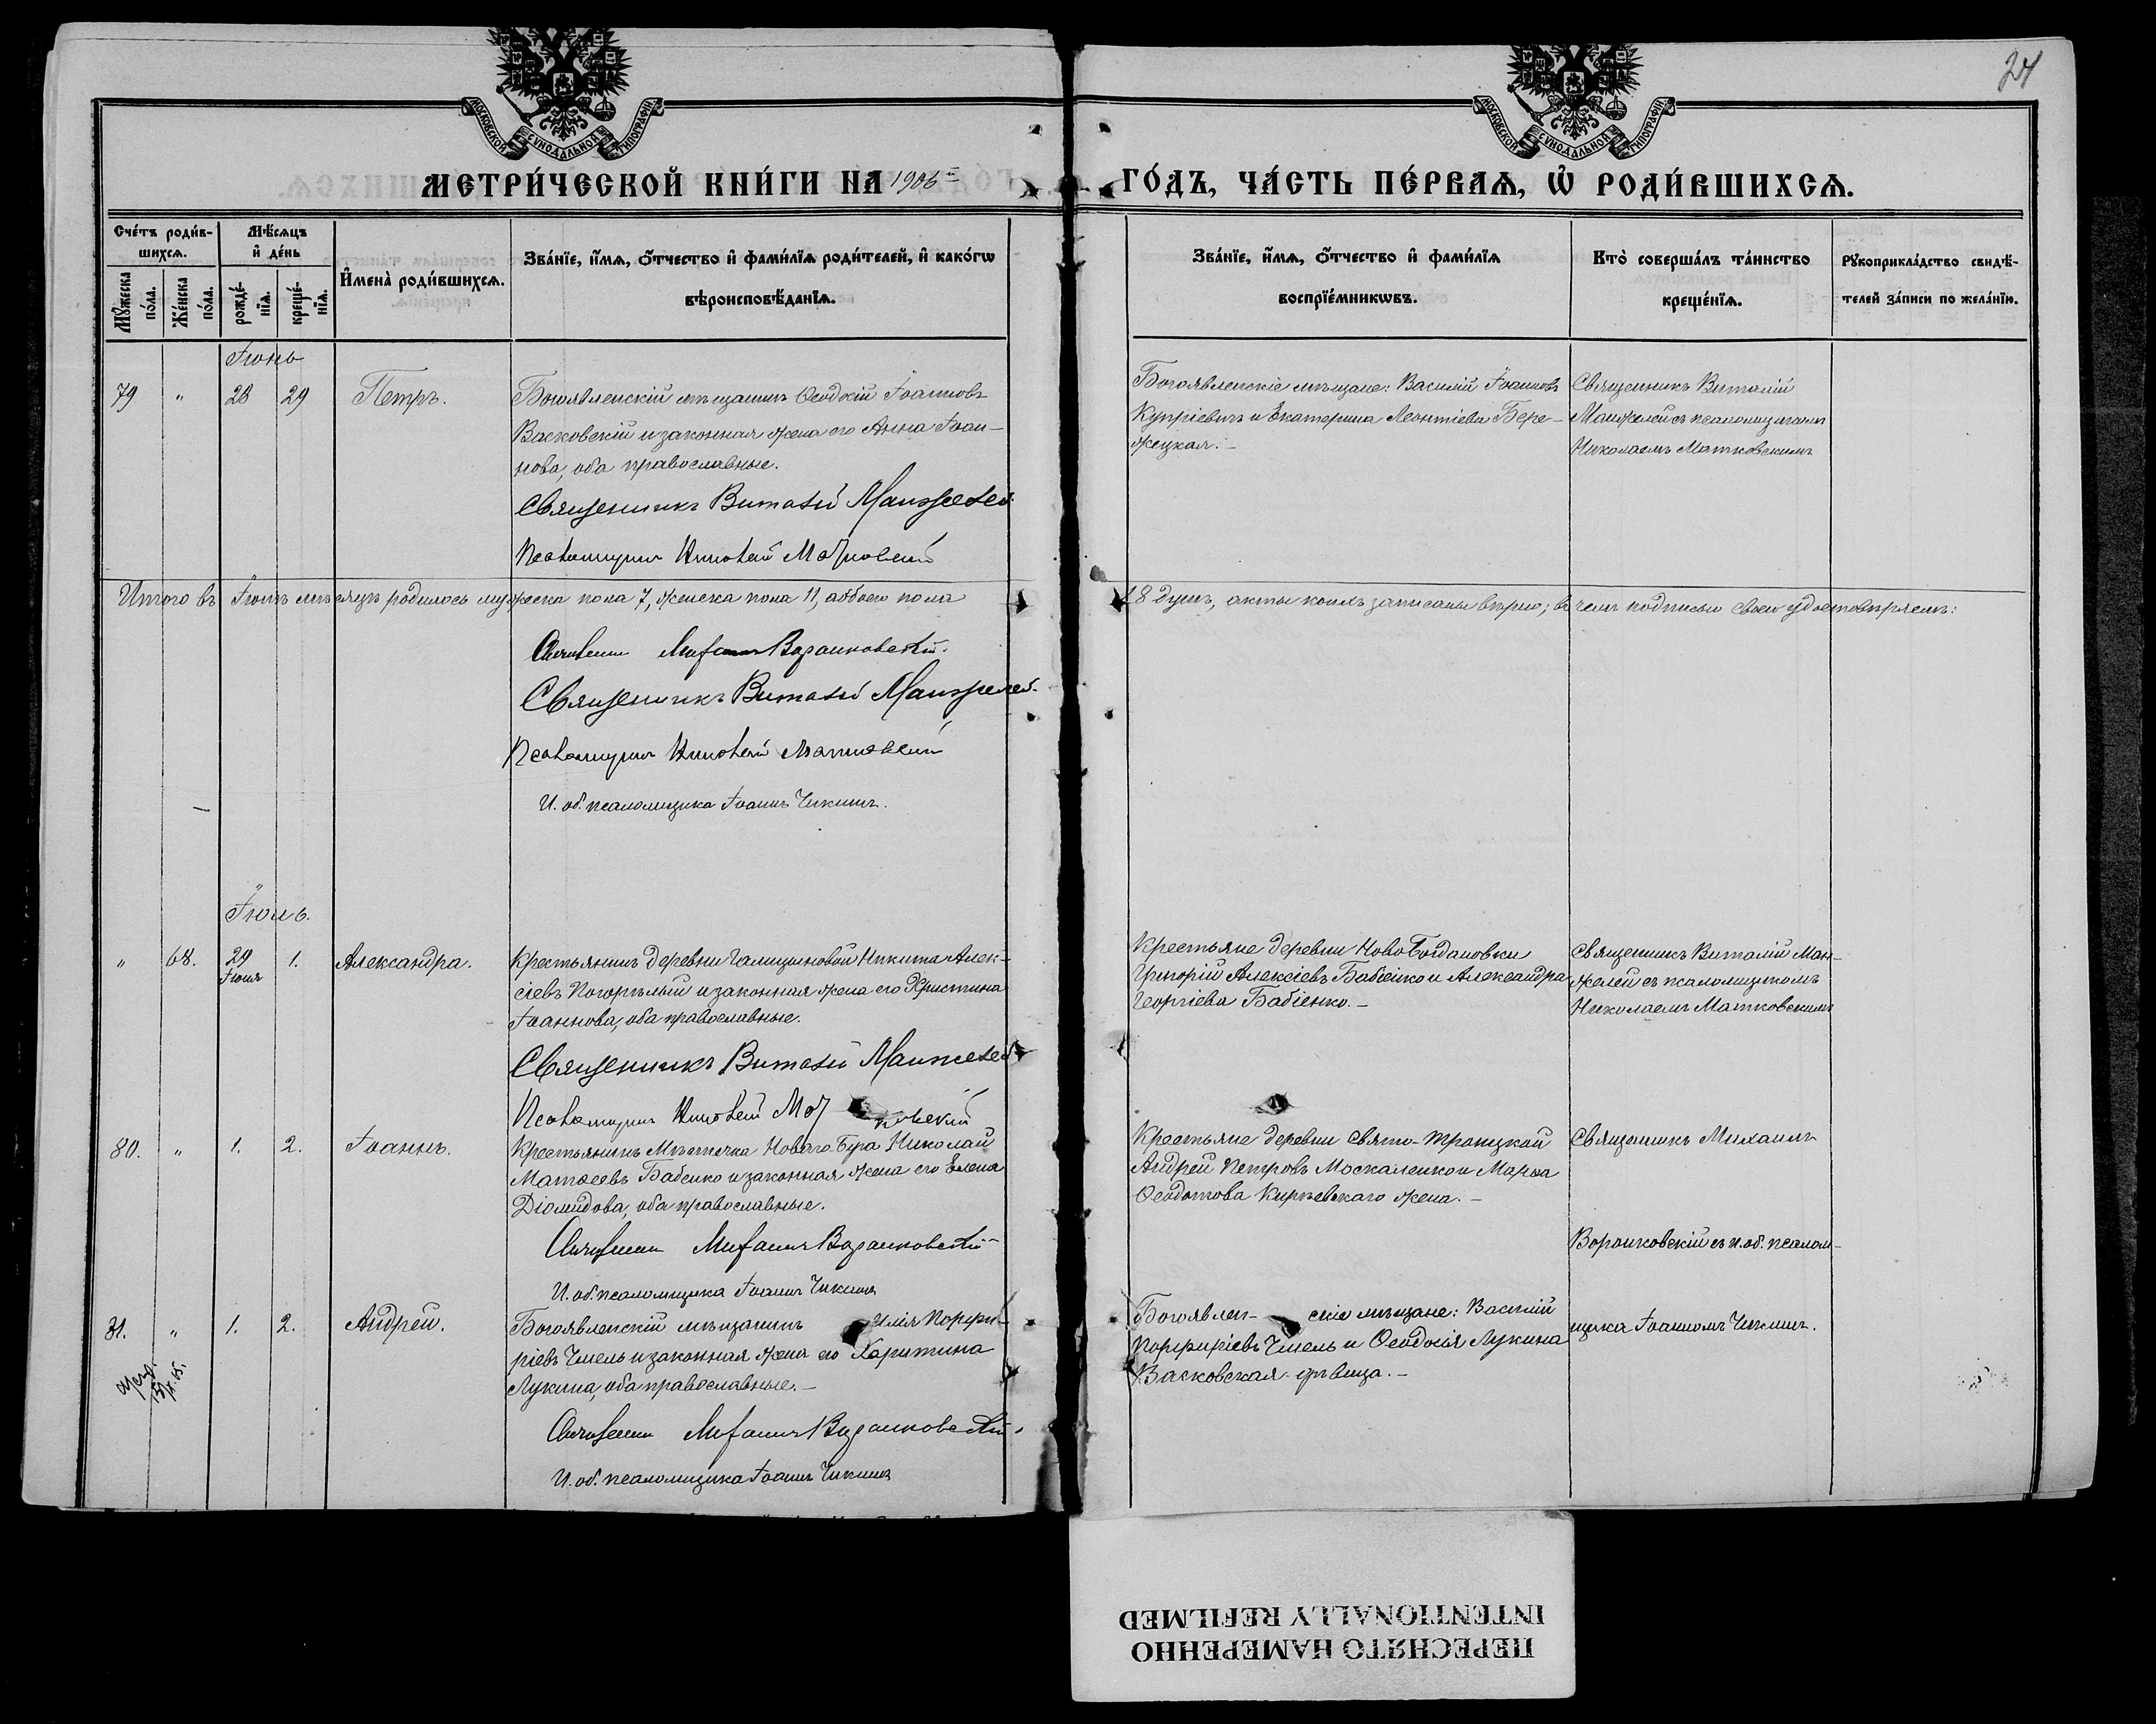 24
МОСКОВСКОЙ СѴНОДАЛЬНОЙ ТИПОГРАФІИ
МОСКОВСКОЙ СѴНОДАЛЬНОЙ ТИПОГРАФІИ
МЕТРИ́ЧЕСКОЙ КНИ́ГИ НА 1906
ГО́ДЪ, ЧА́СТЬ ПЕ́РВАѦ, Ѡ҆ РОДИ́ВШИХСѦ.
Сче́тъ роди́в-
шихсѧ.
Мꙋ́жеска
по́ла.
Же́нска
по́ла.
Мѣ́сѧцъ
и҆ де́нь
рожде́-
нїѧ.
креще́-
нїѧ.
И҆мена̀ роди́вшихсѧ.
Зва́нїе, и҆́мѧ, ѻ҆́тчество и҆ фами́лїѧ роди́телей, и҆ како́гѡ
вѣроисповѣ́данїѧ.
Зва́нїе, и҆́мѧ, ѻ҆́тчество и҆ фами́лїѧ
воспрїе́мникѡвъ.
Кто̀ соверша́лъ та́инство
креще́нїѧ.
Рꙋкоприкла́дство свидѣ́-
телей за́писи по жела́нїю.
Іюнь
79 " 28 29 Петръ.
Богоявленскій мѣщанинъ Ѳеодосій Іоанновъ
Васковскій и законная жена его Анна Іоан-
нова, оба православные.
Священникъ Виталій Манжелей
Псаломщикъ Николай Матковскій
Богоявленскіе мѣщане: Василій Іоанновъ
Купріевичъ и Екатерина Леонтіева Бере-
жецкая.-
Священникъ Виталій
Манжелей съ псаломщикомъ
Николаемъ Матковскимъ
Итого въ Іюнѣ мѣсяцѣ родилось мужеска пола 7, женска пола 11, а обоего пола
18 душъ, акты коихъ записаны вѣрно; въ чемъ подписью своею удостовѣряемъ:
Священникъ Михаилъ Воронковскій.
Священникъ Виталій Манжелей.
Псаломщикъ Николай Матковскій
И. об. псаломщика Іоаннъ Чикинъ.
Іюль.
" 68. 29 Іюня 1. Александра.
Крестьянинъ деревни Галицыновой Никита Алек-
сіевъ Погорѣлый и законная жена его Христина
Іоаннова, оба православные.
Священникъ Виталій Манжелей
Псаломщикъ Николай Матковскій
Крестьяне деревни Ново Богдановки
Григорій Алексіевъ Бабіенко и Александра
Георгіева Бабіенко.-
Священникъ Виталій Ман-
желей съ псаломщикомъ
Николаемъ Матковскимъ
80. " 1. 2. Іоаннъ.
Крестьянинъ Мѣстечка Новаго Буга Николай
Матѳеевъ Бабенко и законная жена его Елена
Діомидова, оба православные.
Священникъ Михаилъ Воронковскій
И. об. псаломщика Іоаннъ Чикинъ
Крестьяне деревни Свято-Троицкой
Андрей Петровъ Москаленко и Марѳа
Ѳеодотова Кирѣевскаго жена.-
Священникъ Михаилъ
Воронковскій съ и. об. псалом-
щика Іоанномъ Чикинъ.
81. " 1. 2. Андрей.
Богоявленскій мѣщанинъ Илія Порфи-
ріевъ Чмель и законная жена его Харитина
Лукина, оба православные.-
Священникъ Михаилъ Воронковскій.
И. об. псаломщика Іоаннъ Чикинъ
Богоявлен-скіе мѣщане: Василій
Порфиріевъ Чмель и Ѳеодосія Лукина
Васковская дѣвица.-
ПЕРЕСНЯТО НАМЕРЕННО
INTENTIONALLY REFILMED